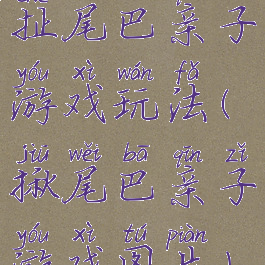 扯尾巴亲子
yóu xì wán fǎ
游戏玩法(
jiū wěi bā qīn zǐ
揪尾巴亲子
yóu xì tú piàn
游戏图片)